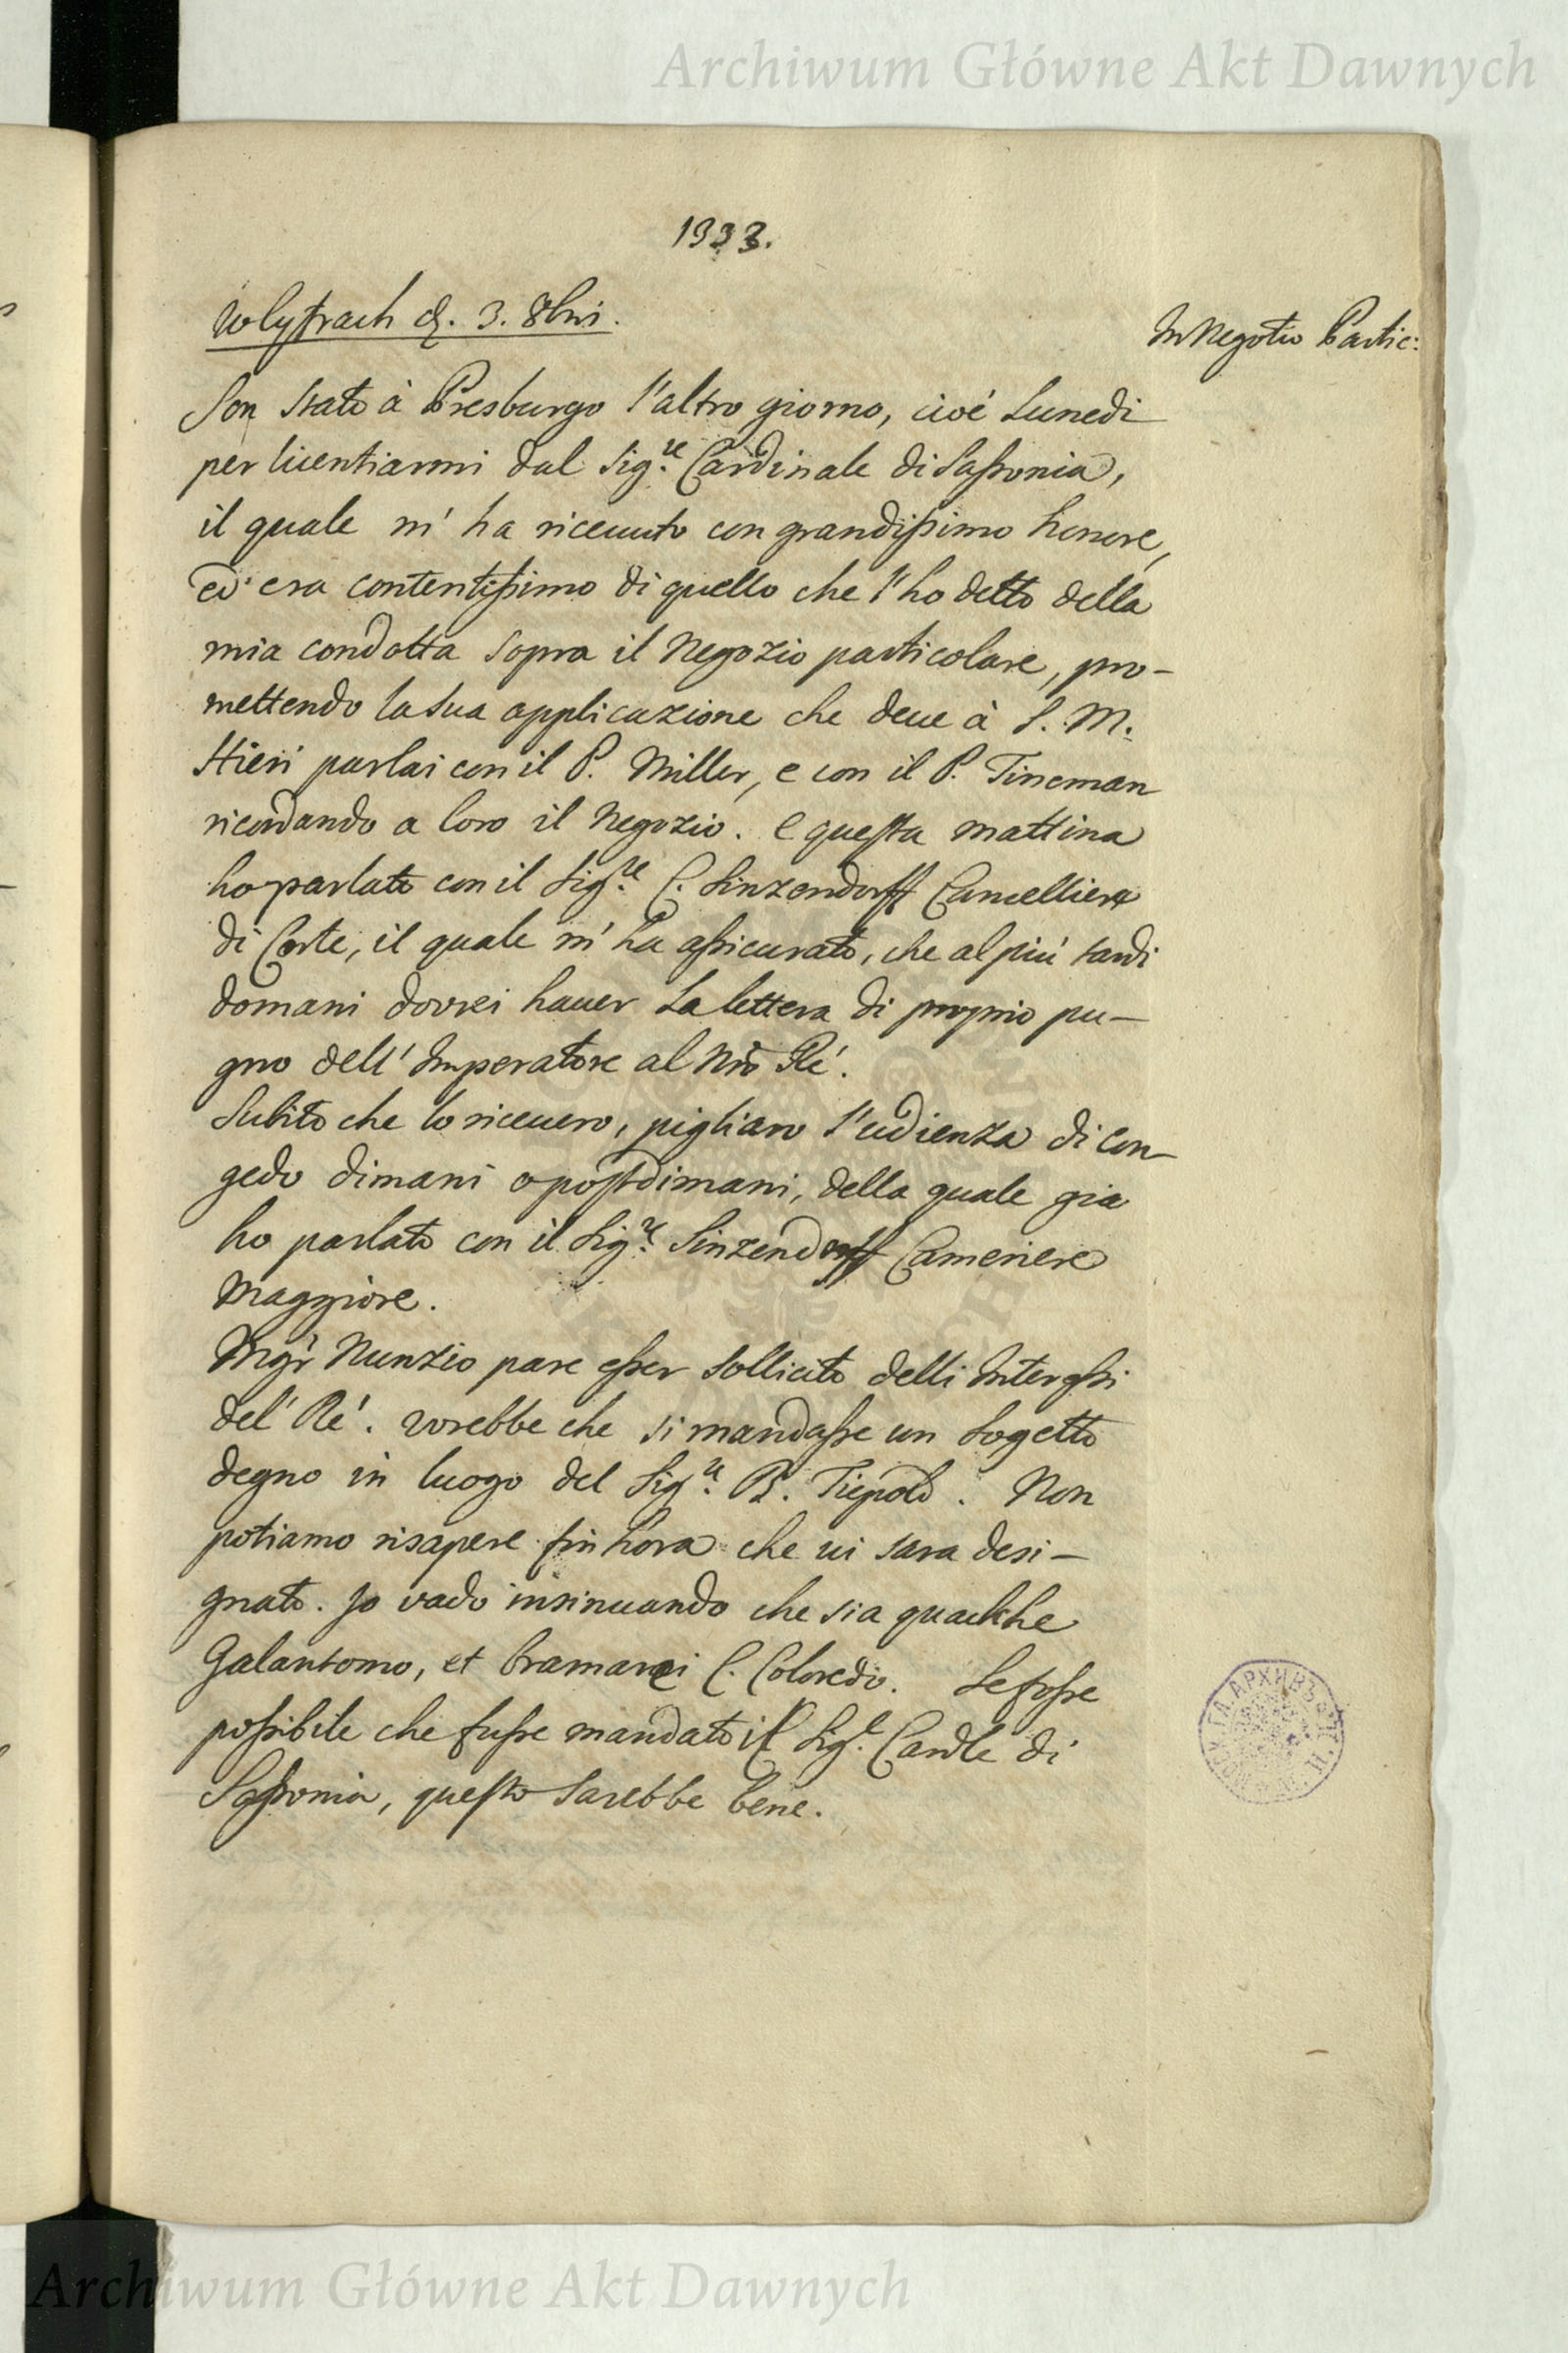 Archiwum Główne Akt Dawnych
1933.
d. 3. 8bri.
In Negotio Partic:
Son stato à Presburgo l'altro giorno, cioé Lunedi
per licentiarmi dal Sig.re Cardinale di Sassonia,
il quale m' ha riceuuto con grandissimo honore,
ed era contentissimo di quello che l'ho detto della
mia condotta sopra il Negozio particolare, pro-
mettendo la sua applicazione che deue à S. M.
Hieri parlai con il P. Miller, e con il P. Tineman
ricordando a loro il Negozio. e questa mattina
ho parlato con il Sig.re C. Sinzendorff Cancelliere
di Corte, il quale m' ha assicurato, che al piú tardi
domani dovrei hauer La lettera di proprio pu-
gno dell' Imperatore al Nro Ré.
Subito che lo riceuero, pigliaro l'udienza di con-
gedo dimani o postdimani, della quale gia
ho parlato con il Sig.re Sinzendorff Cameriere
Maggiore.
Mgr Nunzio pare esser sollicito delli Interessi
del' Ré. vorebbe che si mandasse un Sogetto
degno in luogo del Sig.re B. Tiepold. Non
potiamo risapere fin hora che ui sara desi-
gnato. Jo vado insinuando che sia qualche
Galantomo, et bramarei C. Coloredio. Se fosse
possibile che fusse mandato il Sig.e Cardle di
Sassonia, questo sarebbe bene.
Archiwum Główne Akt Dawnych